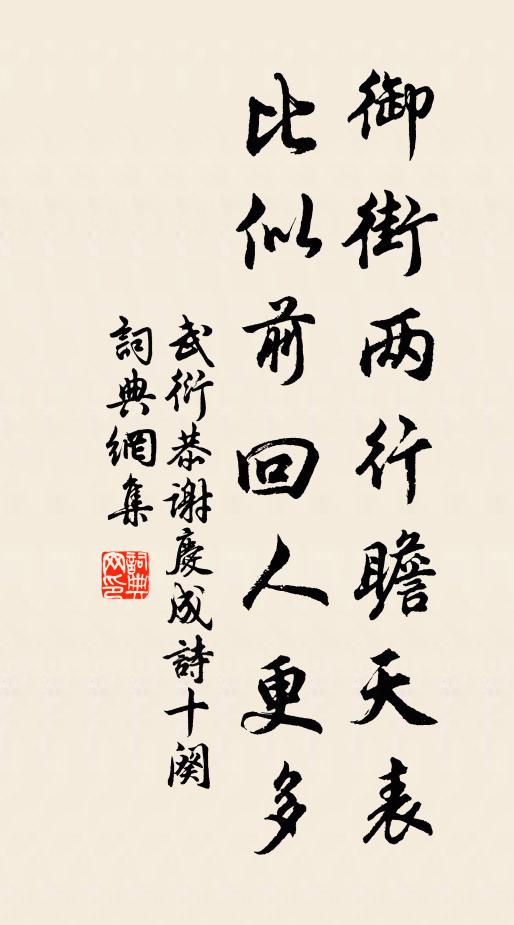 御街两行瞻天表
比似前回人更多
武衍恭谢慶成詩十阕
詞典網集
詞典网印